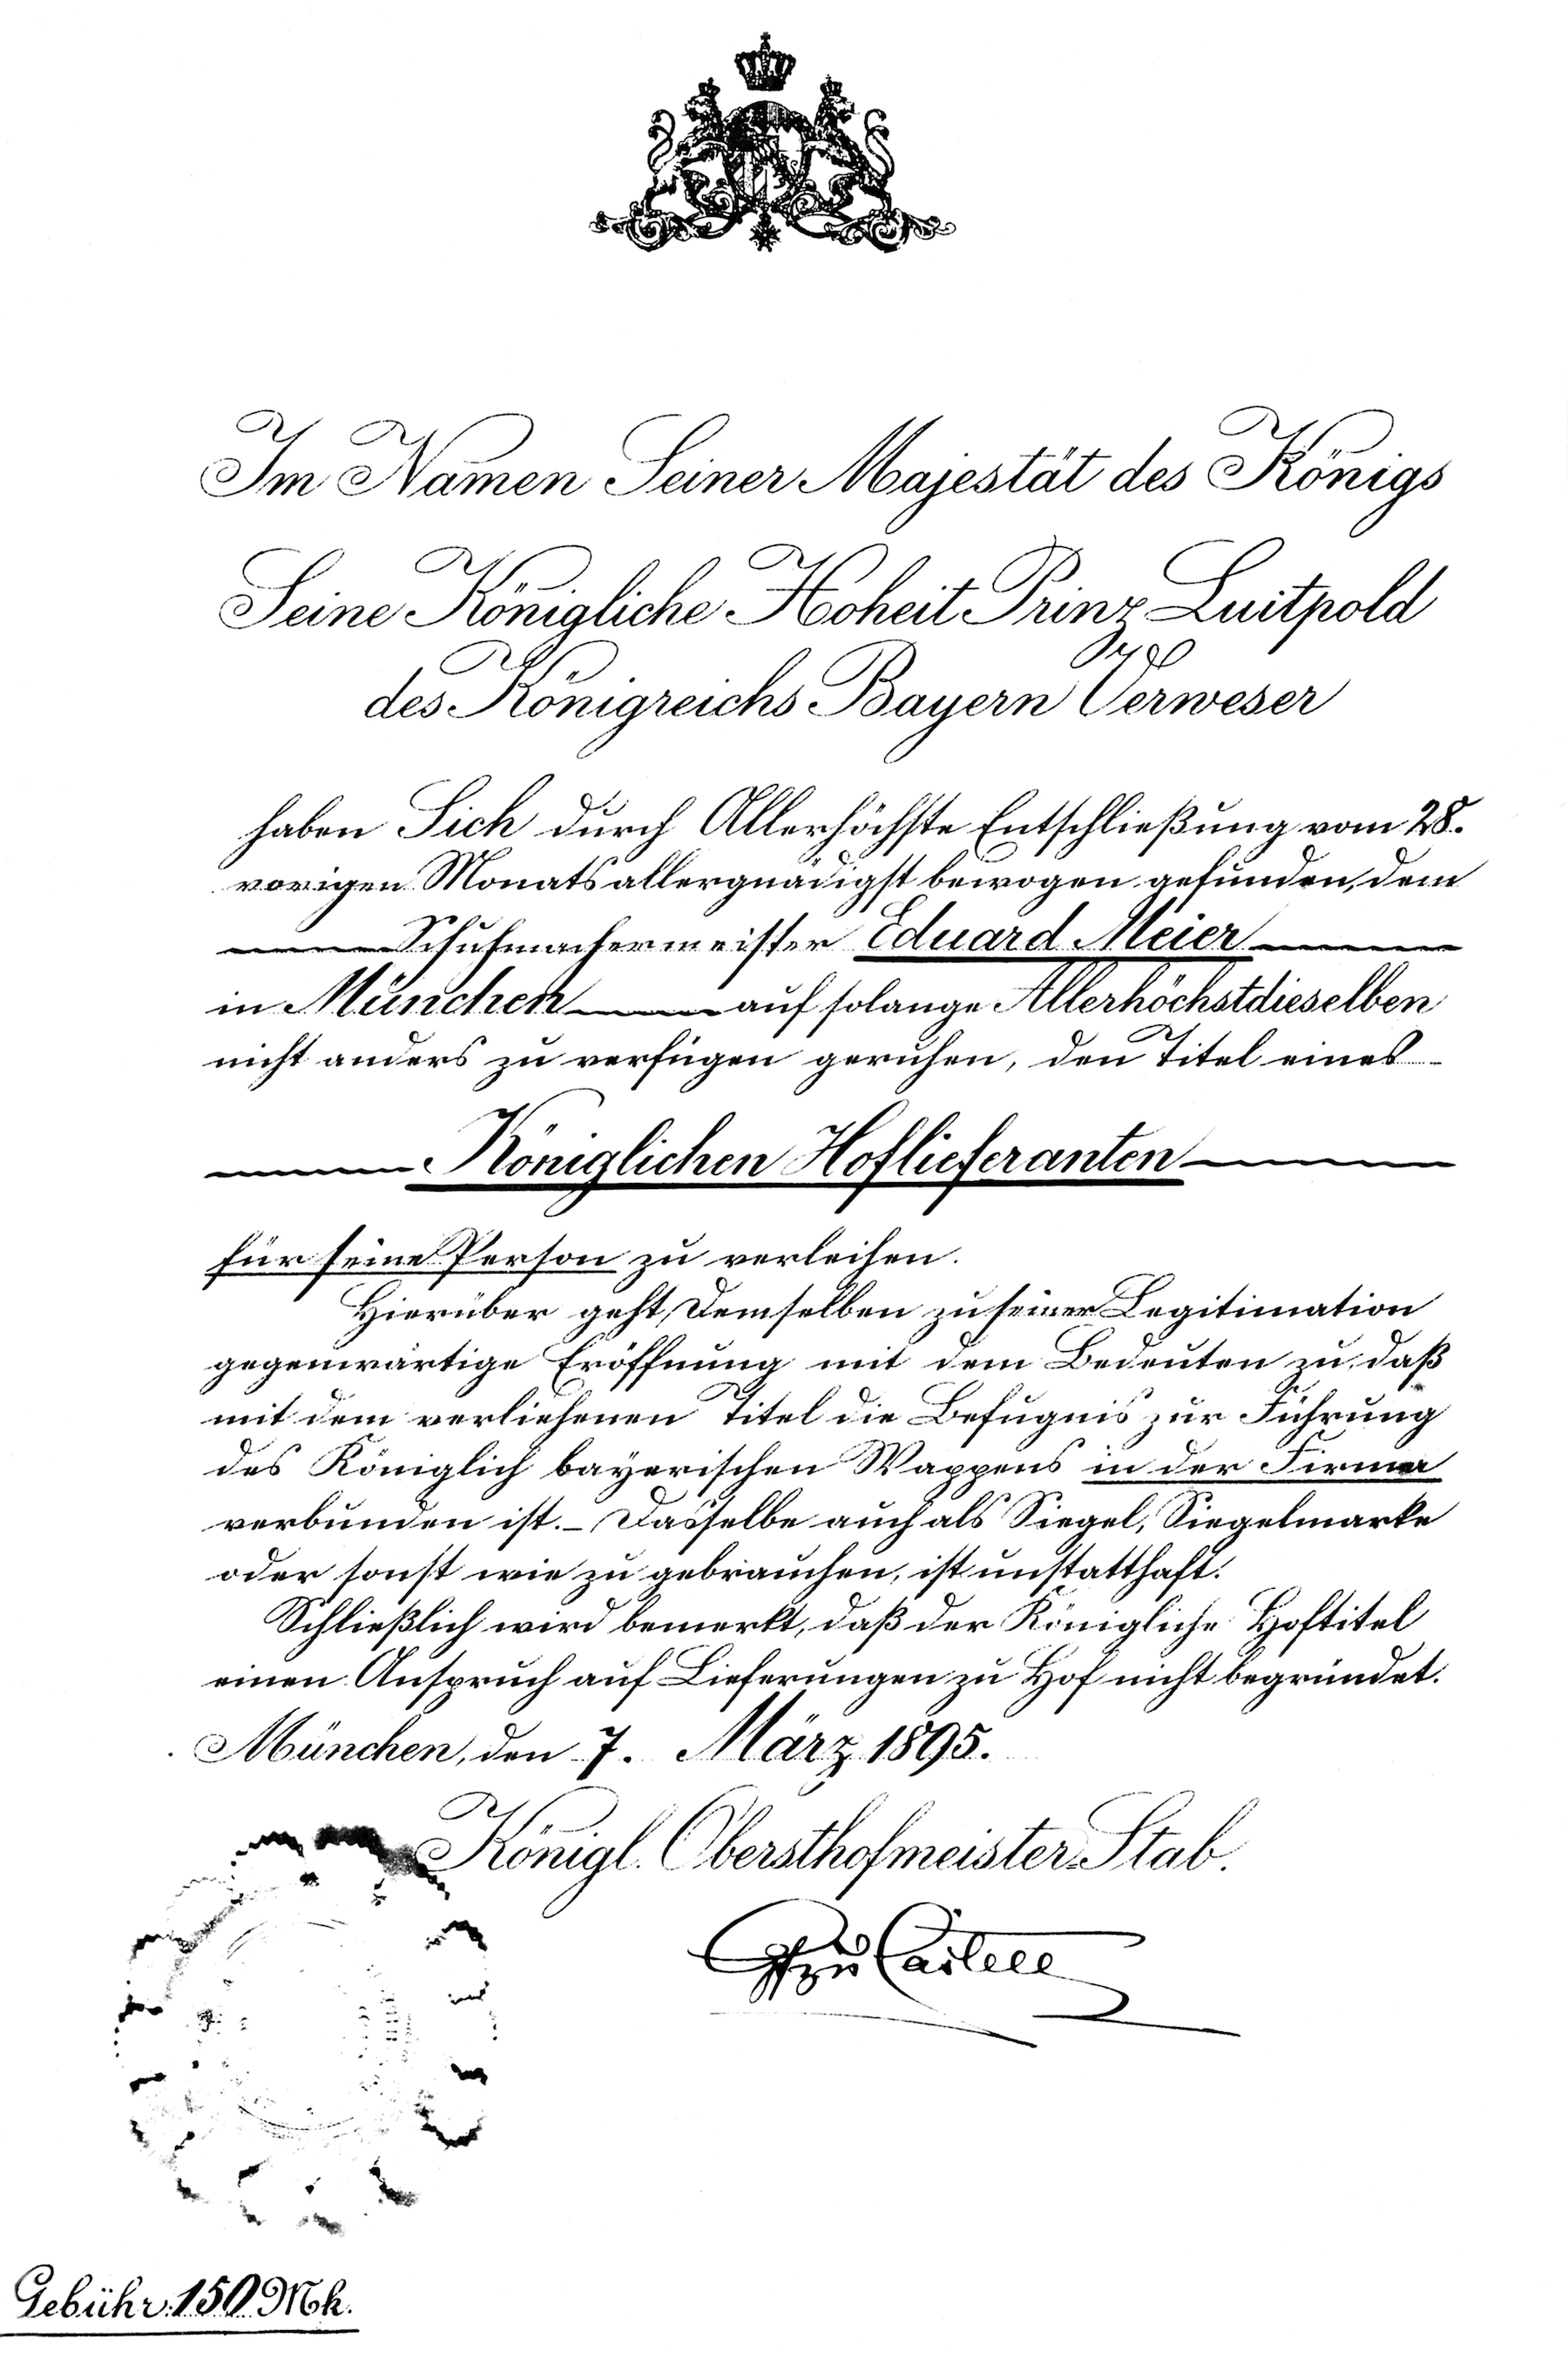 Im Namen Seiner Majestät des Königs
Seine Königliche Hoheit Prinz Luitpold
des Königreichs Bayern Verweser
haben Sich durch Allerhöchste Entschließung vom 28.
vorigen Monats allergnädigst bewogen gefunden, dem
Schuhmachermeister Eduard Meier
in München auf solange Allerhöchstdieselben
nicht anders zu verfügen geruhen, den Titel eines
Königlichen Hoflieferanten
für seine Person zu verleihen.
Hierüber geht Demselben zu seiner Legitimation
gegenwärtige Eröffnung mit dem Bedeuten zu, daß
mit dem verliehenen Titel die Befugnis zur Führung
des Königlich bayerischen Wappens in der Firma
verbunden ist. – Dasselbe auch als Siegel, Siegelmarke
oder sonst wie zu gebrauchen, ist unstatthaft.
Schließlich wird bemerkt, daß der Königliche Hoftitel
einen Anspruch auf Lieferungen zu Hof nicht begründet.
München, den 7. März 1895.
Königl. Obersthofmeister-Stab.
zu Castell
Gebühr: 150 Mk.